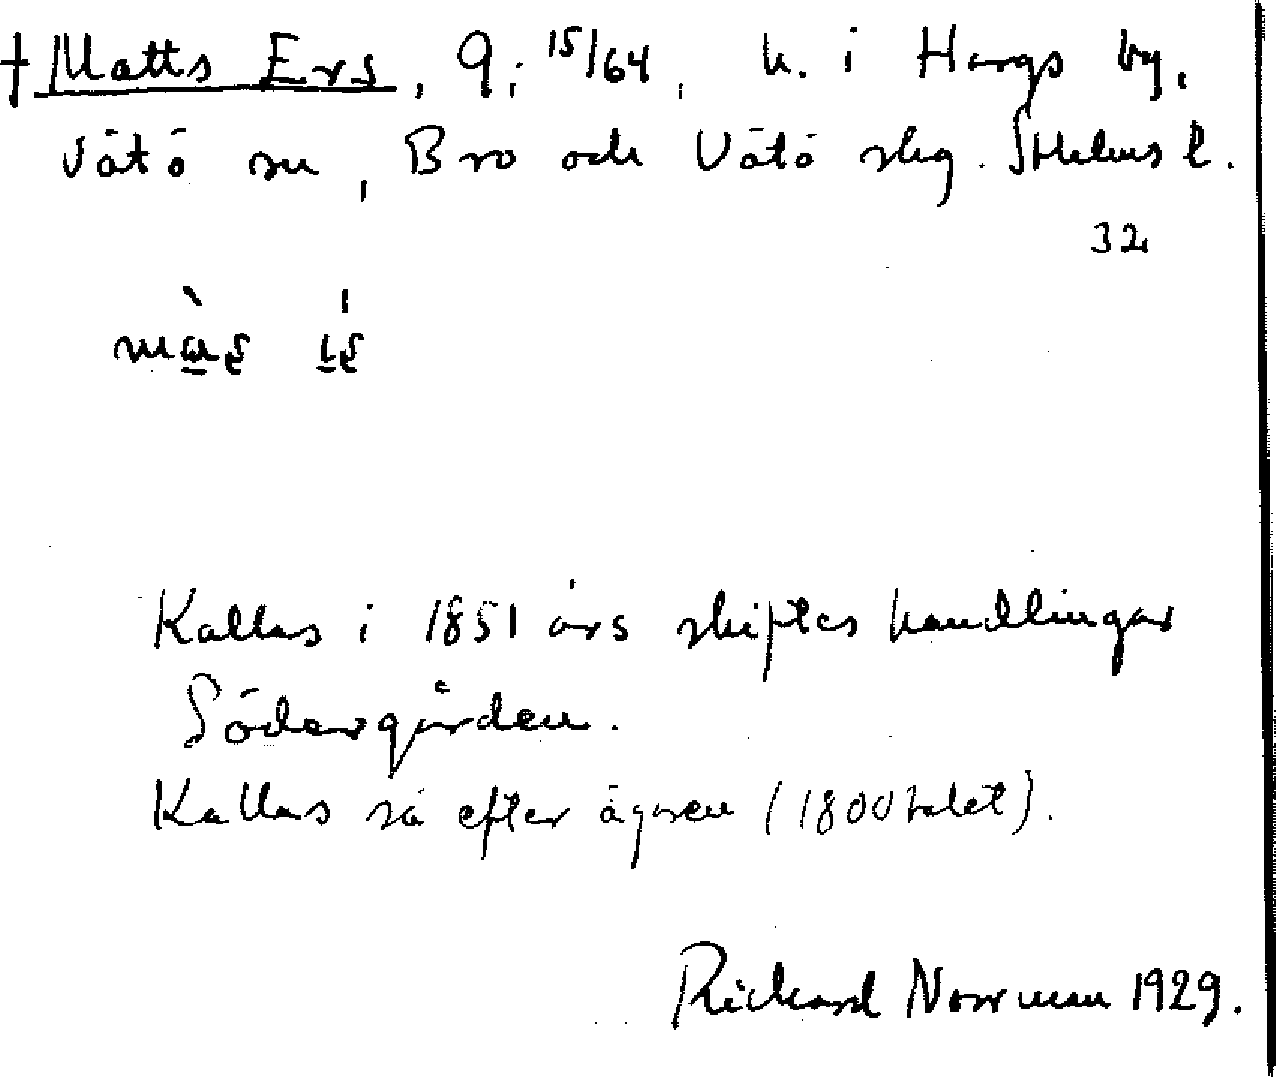 † Matts Ers, 9: 15/64, h. i Hargs by,
Vätö sn, Bro och Vätö skg. Sthlms l.
32
Kallas i 1851 års skifteshandlingar
Södergården.
Kallas så efter ägaren (1800talet).
Rickard Norrman 1929.